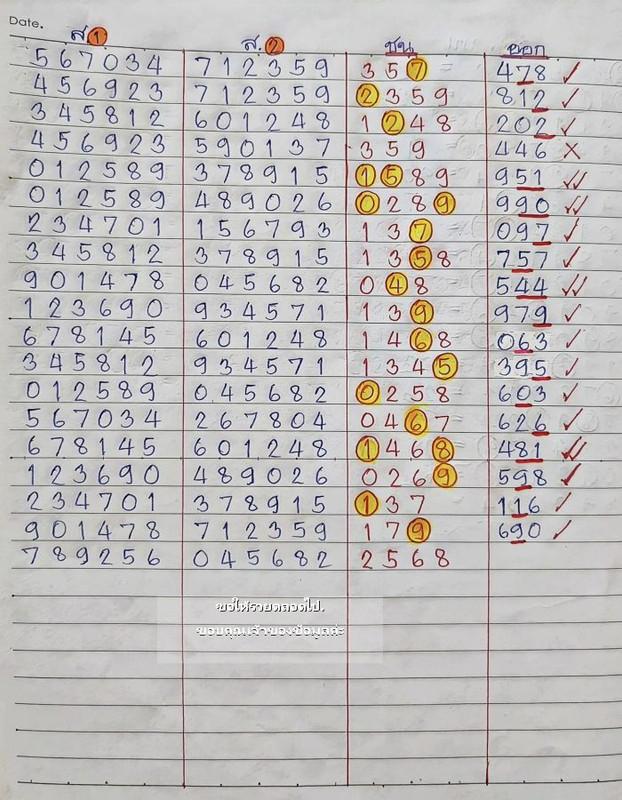 Date.
ส 1 ส. 2 ชน ออก
567034 712359 357 = 478 ✓
456923 712359 2359 812 ✓
345812 601248 1248 202 ✓
456923 590137 359 446 ✗
012589 378915 1589 951 ✓✓
012589 489026 0289 990 ✓✓
234701 156793 137 097 ✓
345812 378915 1358 757 ✓
901478 045682 048 544 ✓✓
123690 934571 139 979 ✓
678145 601248 1468 063 ✓
345812 934571 1345 395 ✓
012589 0.45682 0258 603 ✓
567034 267804 0467 626 ✓
678145 601248 1468 481 ✓✓
123690 489026 0269 598 ✓
234701 378915 137 116 ✓
901478 712359 179 690 ✓
789256 045682 2568
ขอให้รวยตลอดไป.
ขอบคุณเจ้าของข้อมูลค่ะ